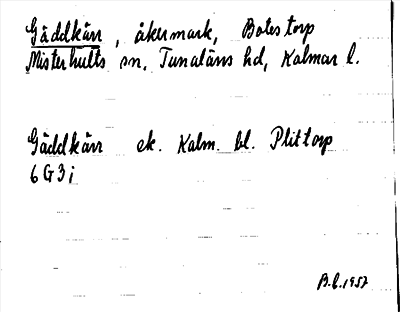 Gäddkärr, åkermark, Botestorp
Misterhults sn, Tunaläns hd, Kalmar l.
Gäddkärr ek. Kalm. bl. Plittorp
6G3i
B.L.1957